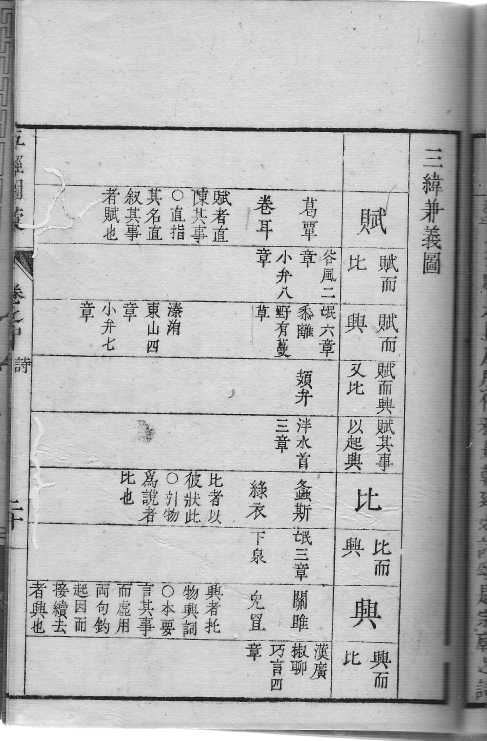 三緯兼義圖
賦
葛覃
卷耳
賦者直
陳其事
○直指
其名直
叙其事
者賦也
賦而
比
谷風二
章
小弁八
章
賦而
興
氓六章
黍離
野有蔓
草
溱洧
東山四
章
小弁七
章
賦而興
又比
頍弁
賦其事
以起興
泮水首
三章
比
螽斯
綠衣
比者以
彼狀此
○引物
為說者
比也
比而
興
氓三章
下泉
興
關雎
兔罝
興者托
物興詞
○本要
言其事
而虛用
兩句鈎
起因而
接續去
者興也
興而
比
漢廣
椒聊
巧言四
章
五經圖彙
詩
二十